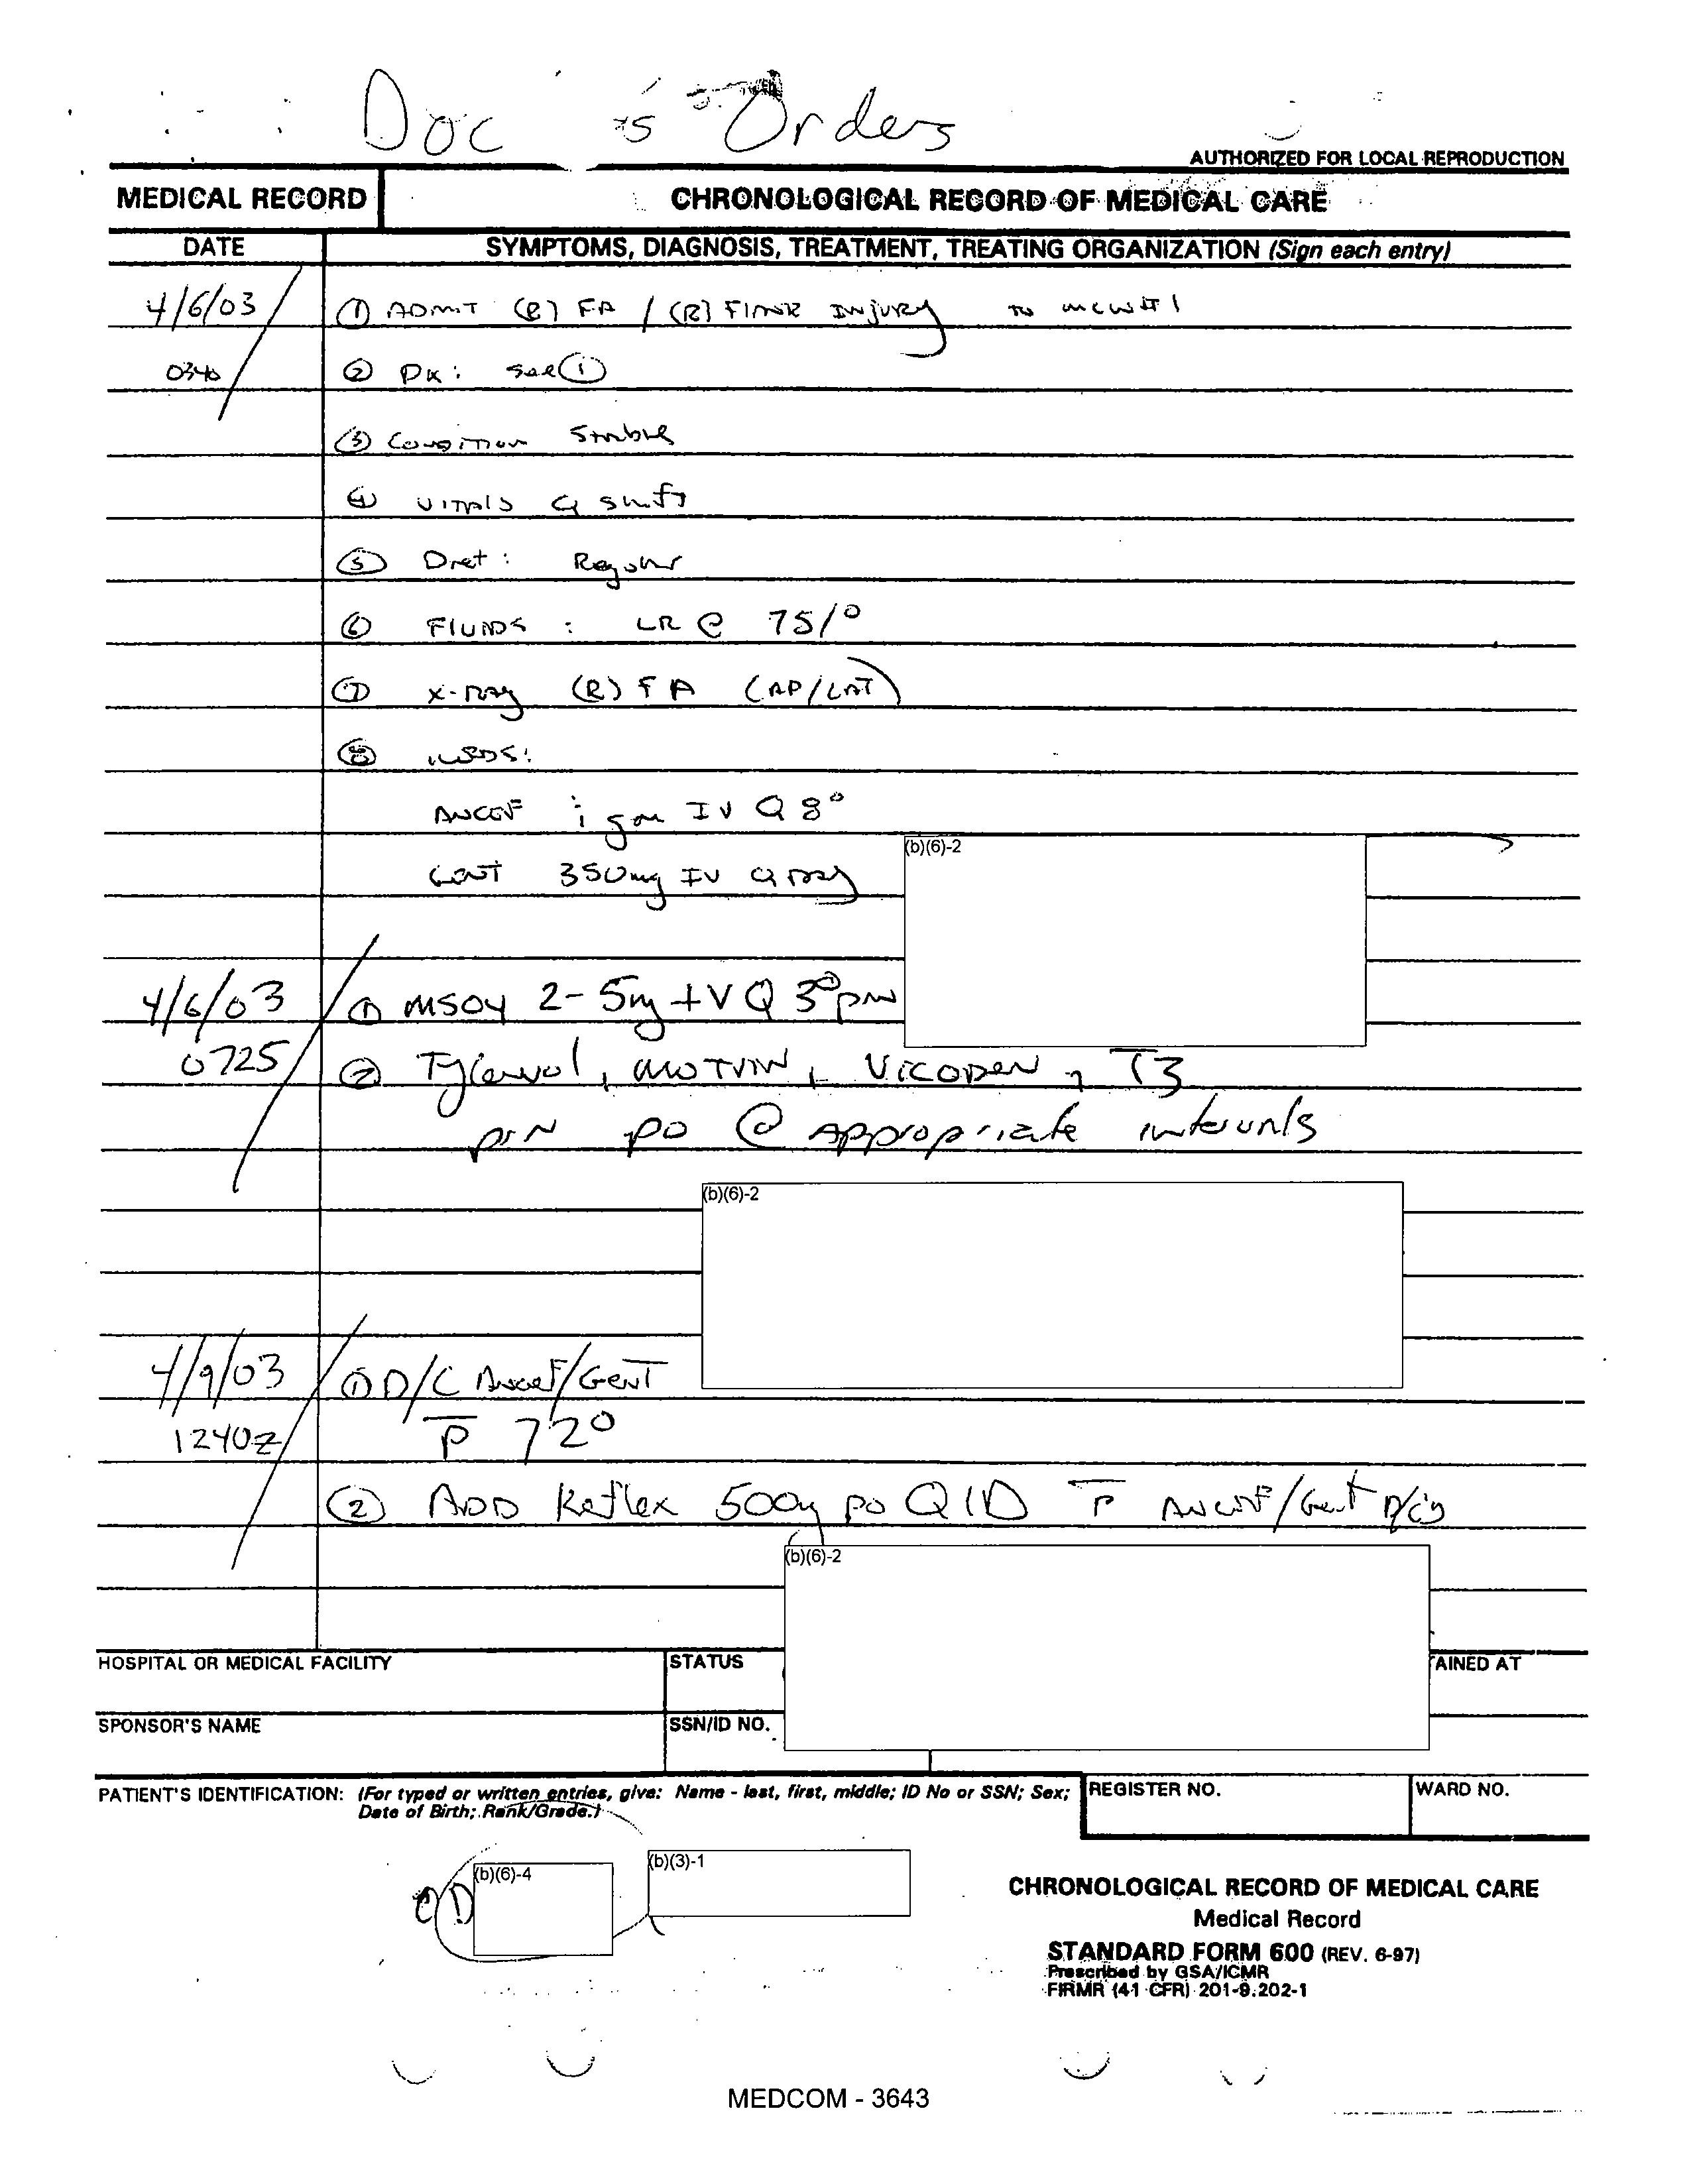 Doc 's Orders
AUTHORIZED FOR LOCAL REPRODUCTION
MEDICAL RECORD CHRONOLOGICAL RECORD OF MEDICAL CARE
DATE SYMPTOMS, DIAGNOSIS, TREATMENT, TREATING ORGANIZATION (Sign each entry)
4/6/03 ① ADMIT (R) FA / (R) FLANK INJURY to
0340 ② Dx: see ①
③ Condition Stable
④ VITALS Q shift
⑤ Diet: Regular
⑥ FLUIDS : LR @ 75/°
⑦ X-ray (R) FA (AP/LAT)
⑧ MEDS:
ANCEF i gm IV Q 8°
GENT 350mg IV Q DAY
(b)(6)-2
4/6/03 ① MSO4 2-5mg IV Q 3° prn
0725 ② Tylenol, MOTRIN, VICODEN, T3
prn po @ appropriate intervals
(b)(6)-2
4/9/03 ① D/C Ancef/Gent
1240Z p̄ 72°
② ADD Keflex 500mg po QID p̄ ANCEF/Gent D/C'd
(b)(6)-2
HOSPITAL OR MEDICAL FACILITY STATUS AINED AT
SPONSOR'S NAME SSN/ID NO.
PATIENT'S IDENTIFICATION: (For typed or written entries, give: Name - last, first, middle; ID No or SSN; Sex; REGISTER NO. WARD NO.
Date of Birth; Rank/Grade.)
(b)(6)-4 (b)(3)-1
CHRONOLOGICAL RECORD OF MEDICAL CARE
Medical Record
STANDARD FORM 600 (REV. 6-97)
Prescribed by GSA/ICMR
FIRMR (41 CFR) 201-9.202-1
MEDCOM - 3643